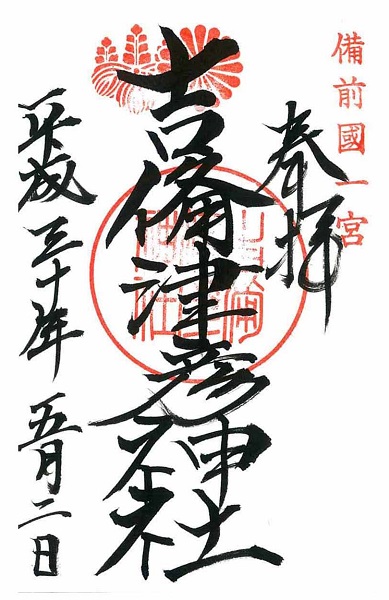 備前國一宮
奉拝
吉備津彦神社
平成三十年 五月二日